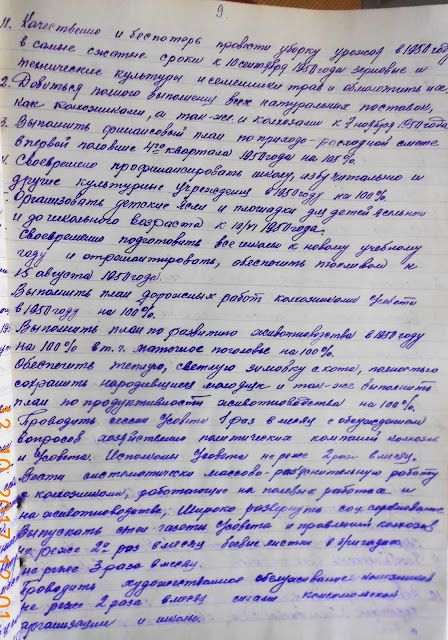 9
11. Качественно и беспотерь провести уборку урожая в 1950 году
в самые сжатые сроки к 10 сентября 1950 года зерновые и
технические культуры и семенники трав и обмолотить их.
2. Добиться полного выполнения всех натуральных поставок,
как колхозниками, а так-же и колхозами к 7 ноября 1950 года
3. Выполнить финансовый план по приходо-расходной смете
в первой половине 4го квартала 1950 года на 100%.
4. Своевременно профинансировать школу, избу читальню и
другие культурные учреждения в 1950 году на 100%.
Организовать детские ясли и площадки для детей ясельного
и дошкольного возраста к 10/VI 1950 года.
Своевременно подготовить все школы к новому учебному
году и отремонтировать, обеспечить топливом к
15 августа 1950 года.
Выполнить план дорожных работ колхозниками с/совета
в 1950 году на 100%.
Выполнить план по развитию животноводства в 1950 году
на 100% в т.г. маточное поголовье на 100%.
Обеспечить теплую, светлую зимовку скота, полностью
сохранить народившийся молодняк и так-же выполнить
план по продуктивности животноводства на 100%.
Проводить сессии с/совета 1 раз в месяц с обсуждением
вопросов хозяйственно политических кампаний колхозов
и с/совета. Исполкомы с/совета не реже 2 раз в месяц.
Вести систематически массово-разъяснительную работу
с колхозниками, работающие на полевых работах и
на животноводстве; Широко развернуть соц. соревнование
Выпускать стен газеты с/совета и правлений колхозов
не реже 2х раз в месяц боевые листки в бригадах
не реже 3 раза в месяц.
Проводить художественное обслуживание колхозников
не реже 2 раза в месяц силами комсомольской
организации и школы.